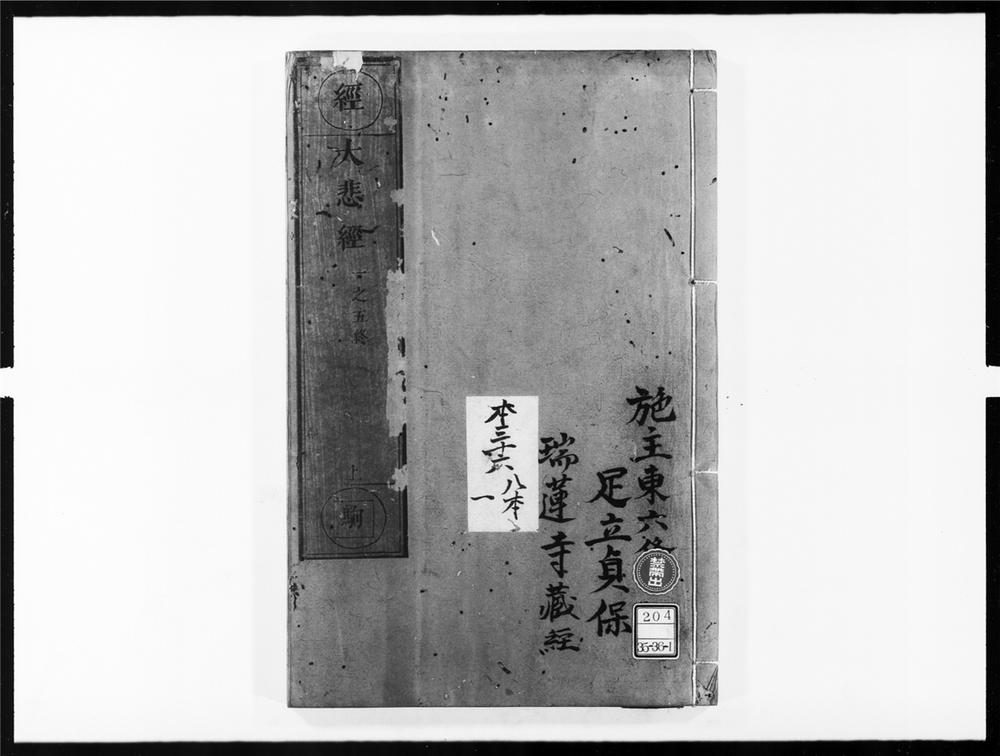 施主東六條
足立貞保
瑞蓮寺藏經
本三十六
八本
一
經
大悲經
一之五終
上
駒
禁帶出
204
35-36-1